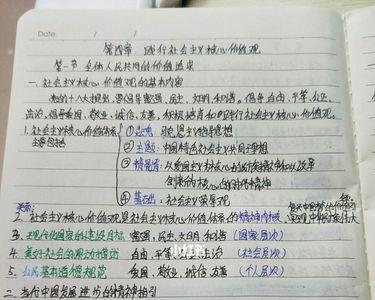 Date:
第四章 践行社会主义核心价值观
第一节 全体人民共同的价值追求
一、社会主义核心价值观的基本内容
党的十八大提出,要倡导富强、民主、文明、和谐。倡导自由、平等、公正、
法治,倡导爱国、敬业、诚信、友善,积极培育和践行社会主义核心价值观。
1. 社会主义核心价值体系
主要包括
① 灵魂:
② 主题:中国特色社会主义共同理想
③ 精髓:以爱国主义为核心的民族精神和以改革
创新为核心的时代精神
④ 基础:社会主义荣辱观
2. 社会主义核心价值观是社会主义核心价值体系的精神内核
3. 现代化国家的建设目标 富强、民主、文明、和谐(国家层次)
4. 美好社会的 自由、平等、公正、法治(社会层次)
5. 公民基本道德规范 爱国、敬业、诚信、友善(个人层次)
二、当代中国发展进步的精神指引
小红书